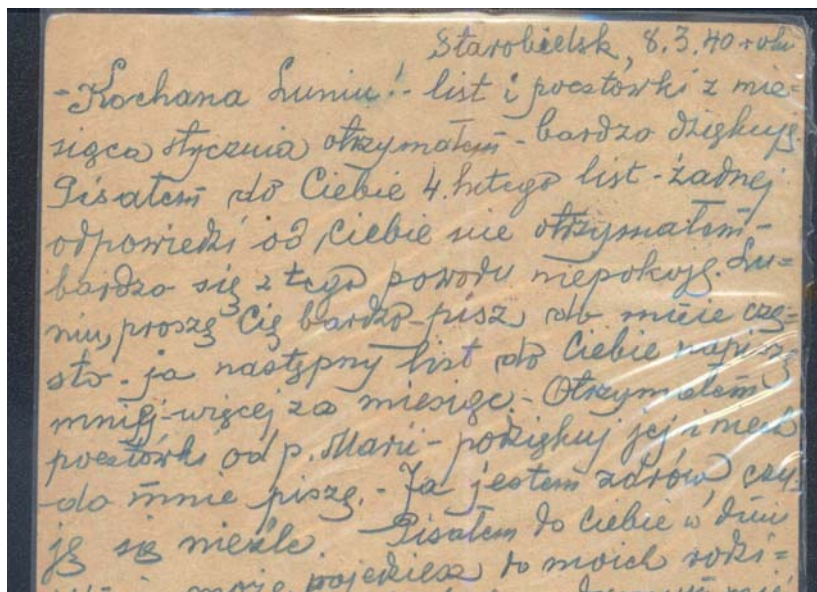 Starobielsk, 8.3.40 roku
- Kochana Luniu! - list i pocztówki z mie=
siąca stycznia otrzymałem - bardzo dziękuję.
Pisałem do Ciebie 4. lutego list - żadnej
odpowiedzi od Ciebie nie otrzymałem -
bardzo się z tego powodu niepokoję. Lu=
niu, proszę Cię bardzo - pisz do mnie czę=
sto - ja następny list do Ciebie napiszę
mniej-więcej za miesiąc. - Otrzymałem
pocztówki od p. Marii - podziękuj jej i niech
do mnie piszę. - Ja jestem zdrów, czu=
ję się nieźle. Pisałem do Ciebie w dniu
może pojedziesz do moich rodzi=